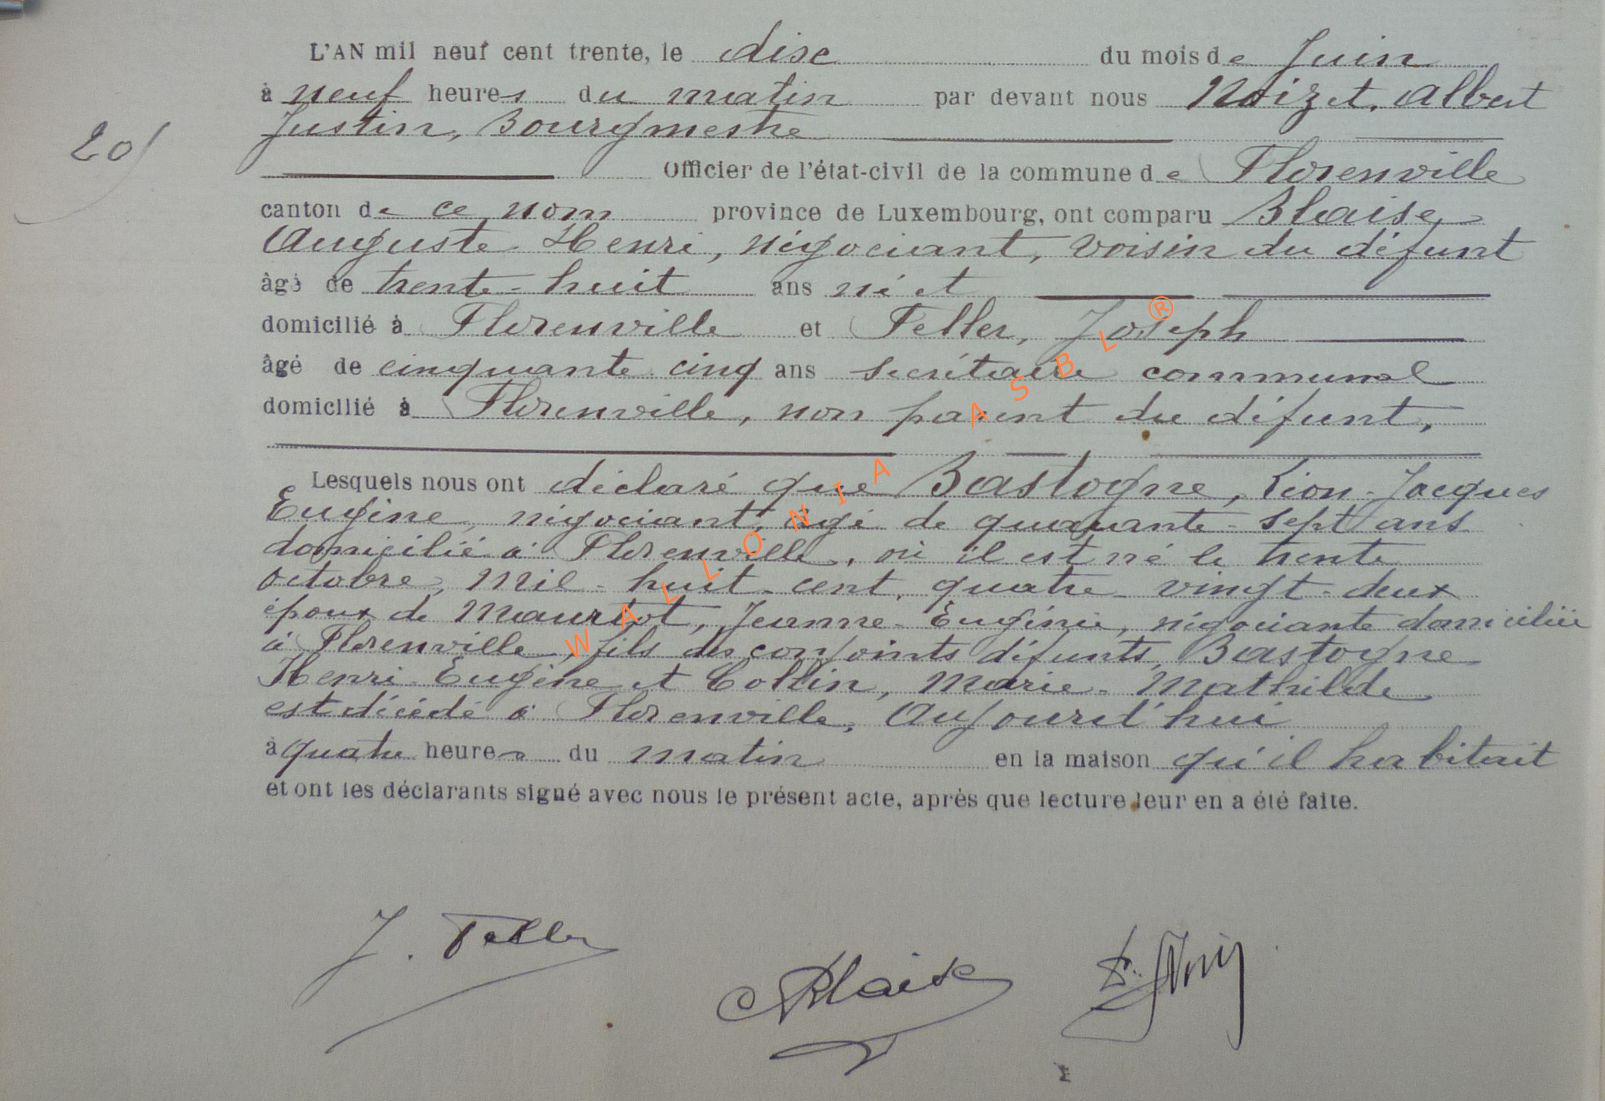 L'AN mil neuf cent trente, le disc du mois de Juin
à neuf heures du matin par devant nous Noizet, Albert
Justin, Bourgmestre
20/
Officier de l'état-civil de la commune de Florenville
canton de ce nom province de Luxembourg, ont comparu Blaise,
Auguste Henri, négociant, voisin du défunt
âgé de trente-huit ans né et
domicilié à Florenville et Feller, Joseph
âgé de cinquante cinq ans secrétaire communal
domicilié à Florenville, non parent du défunt,
Lesquels nous ont déclaré que Bastogne, Léon-Jacques
Eugène, négociant, âgé de quarante-sept ans
domicilié à Florenville, où il est né le trente
octobre, mil-huit-cent, quatre-vingt-deux
époux de Jeanne-Eugénie, négociante domiciliée
à Florenville, fils des conjoints défunts, Bastogne
Henri-Eugène et Collin, Marie-Mathilde
est décédé à Florenville, Aujourd'hui
à quatre heures du matin en la maison qu'il habitait
et ont les déclarants signé avec nous le présent acte, après que lecture leur en a été faite.
J. Feller
Blaise
WALLONIA ASBL ®